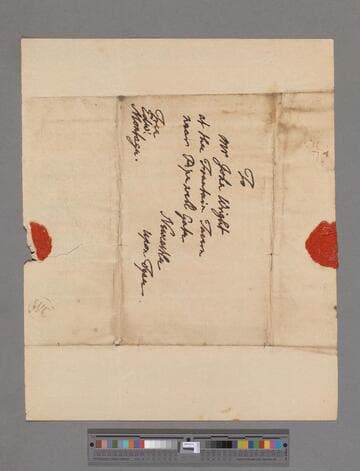 To
Mr John Wight
at the Fountain Tavern
near Pipewell Gate
Newcastle
upon Tyne.
Free
Edw.
Montagu.